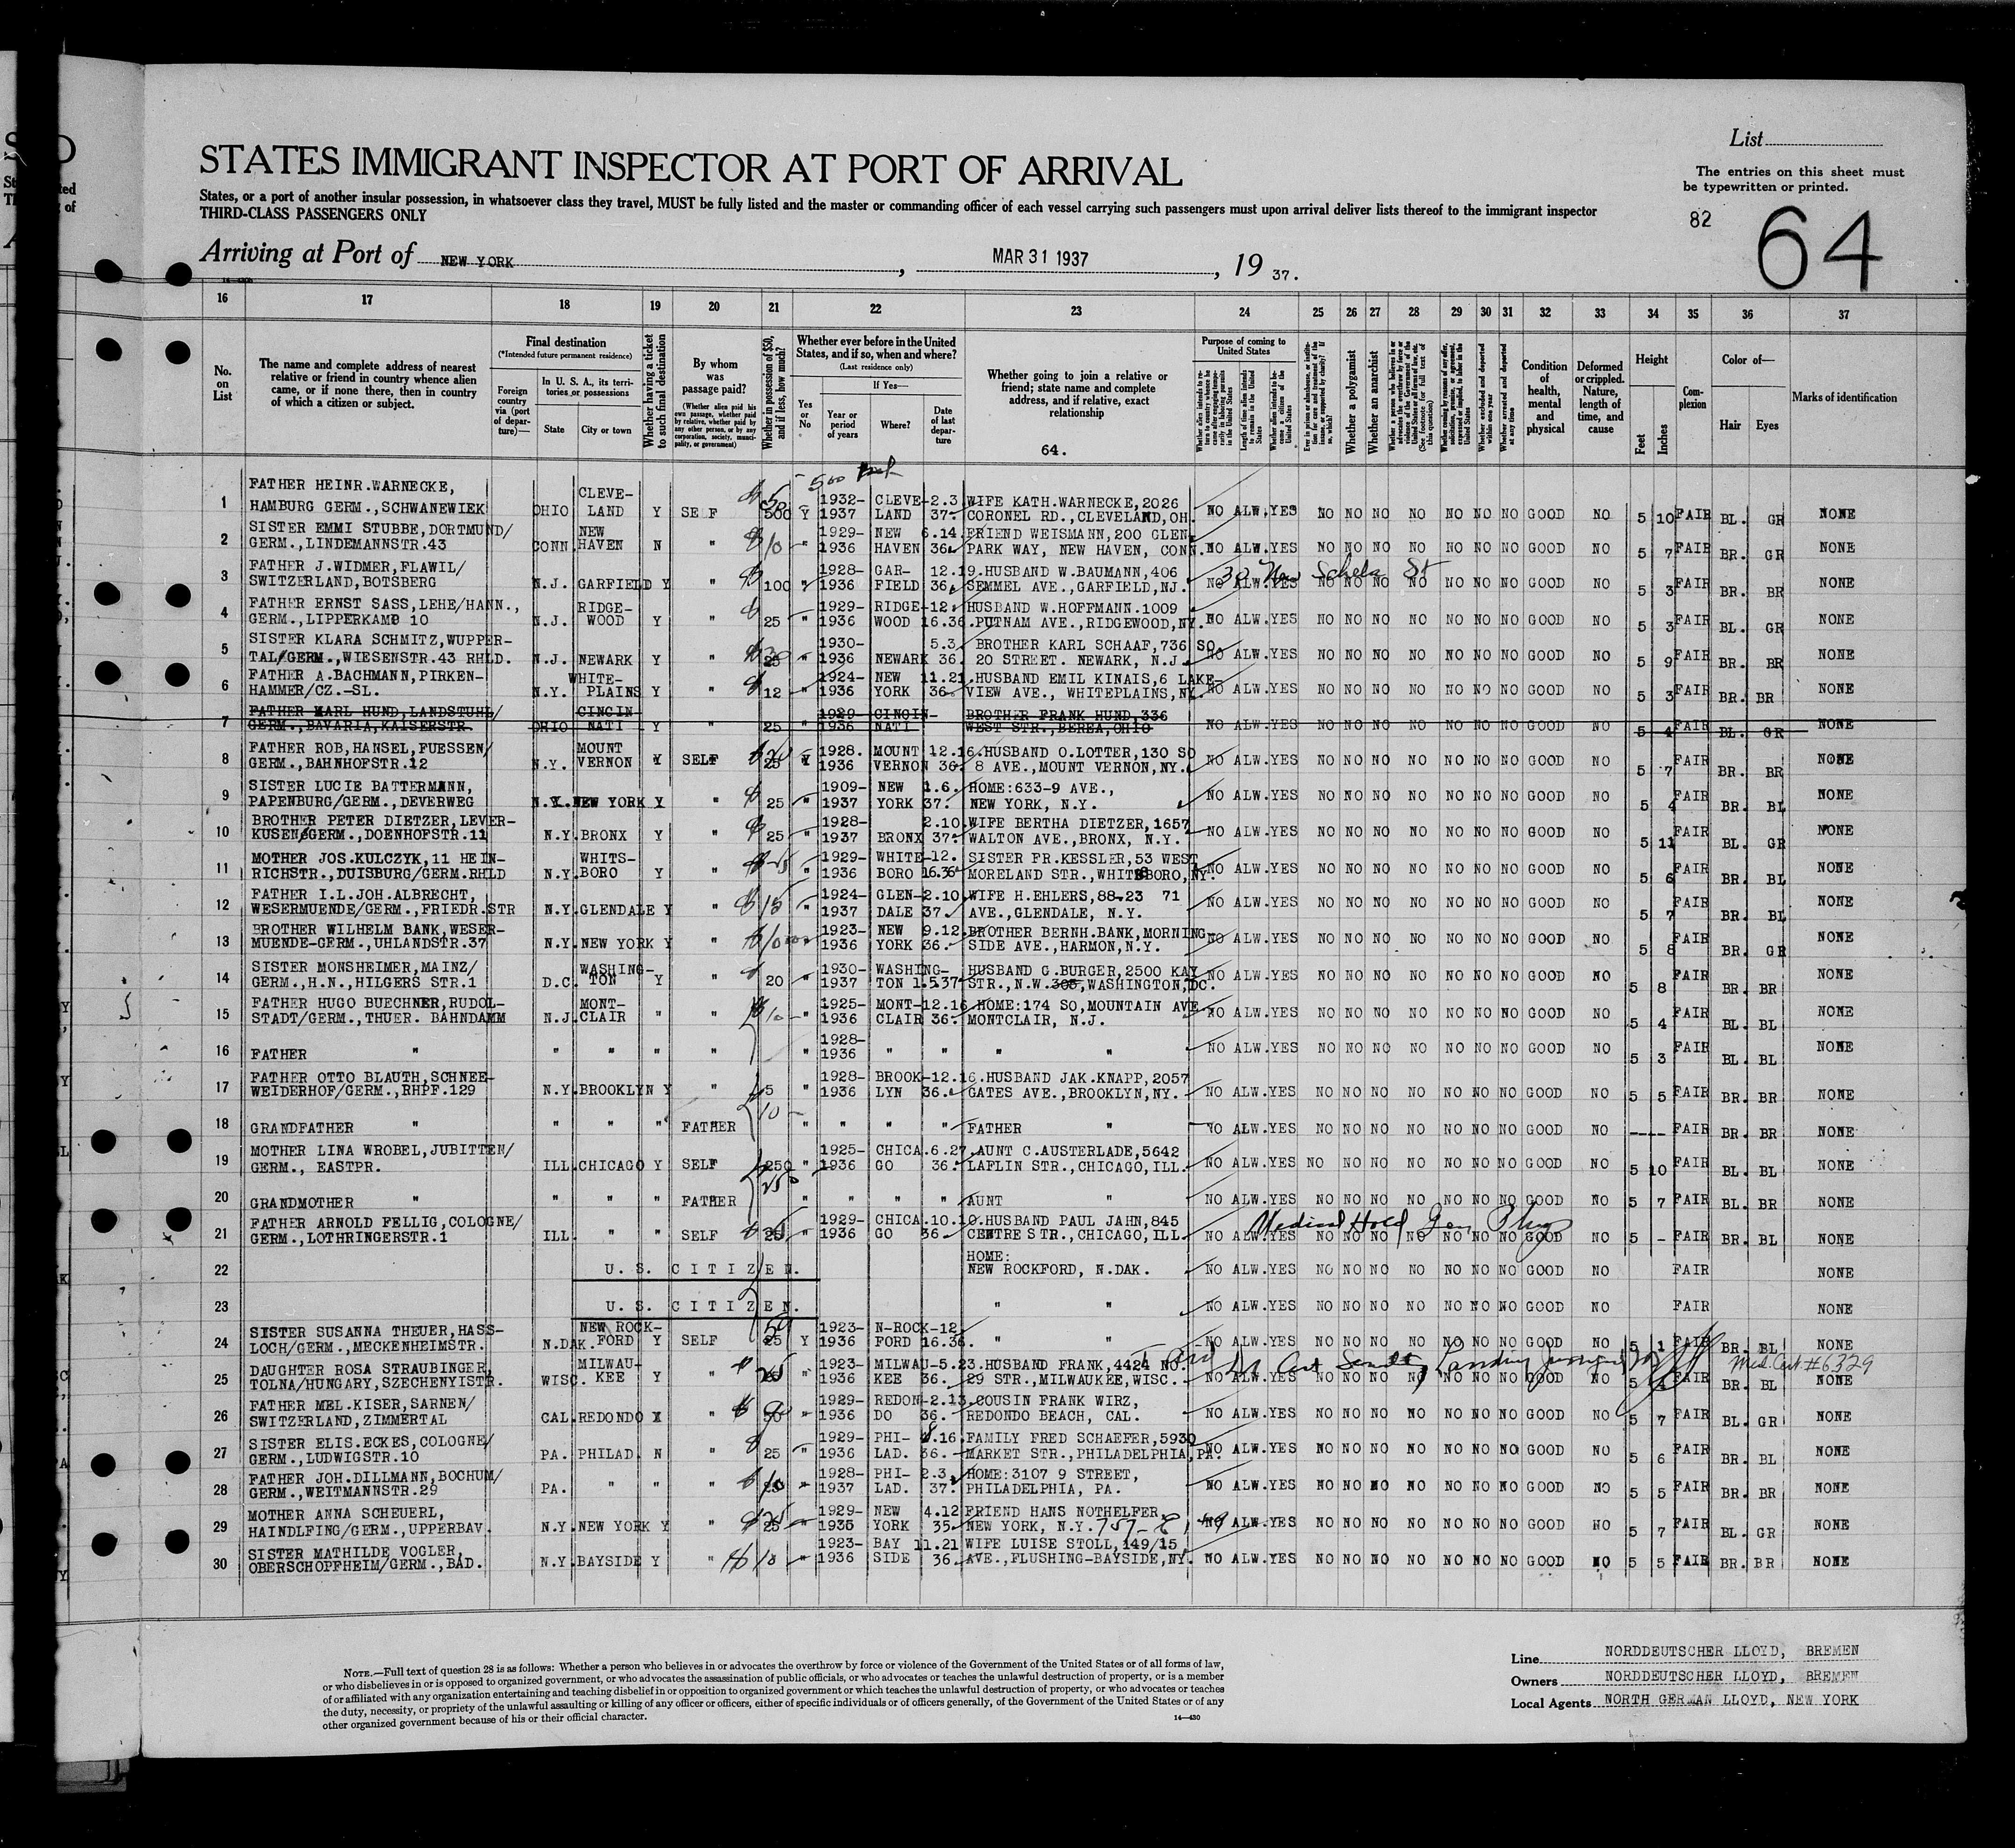 List
STATES IMMIGRANT INSPECTOR AT PORT OF ARRIVAL
The entries on this sheet must
be typewritten or printed.
States, or a port of another insular possession, in whatsoever class they travel, MUST be fully listed and the master or commanding officer of each vessel carrying such passengers must upon arrival deliver lists thereof to the immigrant inspector
THIRD-CLASS PASSENGERS ONLY
82 64
Arriving at Port of NEW YORK, MAR 31 1937, 19 37.
16 17 18 19 20 21 22 23 24 25 26 27 28 29 30 31 32 33 34 35 36 37
No. on List
The name and complete address of nearest relative or friend in country whence alien came, or if none there, then in country of which a citizen or subject.
Final destination
(*Intended future permanent residence)
Foreign country via (port of departure)—
In U. S. A., its territories or possessions
State City or town
Whether having a ticket to such final destination
By whom was passage paid?
(Whether alien paid his own passage, whether paid by relative, whether paid by any other person, or by any corporation, society, municipality, or government)
Whether in possession of $50, and if less, how much?
Whether ever before in the United States, and if so, when and where?
(Last residence only)
Yes or No
If Yes—
Year or period of years Where? Date of last departure
Whether going to join a relative or friend; state name and complete address, and if relative, exact relationship
64.
Purpose of coming to United States
Whether a polygamist
Whether an anarchist
Condition of health, mental and physical
Deformed or crippled. Nature, length of time, and cause
Height
Feet Inches
Complexion
Color of—
Hair Eyes
Marks of identification
1 FATHER HEINR.WARNECKE, CLEVE- 1932- CLEVE-2.3 WIFE KATH.WARNECKE,2026
HAMBURG GERM.,SCHWANEWIEK OHIO LAND Y SELF 500 Y 1937 LAND 37. CORONEL RD.,CLEVELAND,OH. NO ALW.YES NO NO NO NO NO NO NO GOOD NO 5 10 FAIR BL. GR NONE
2 SISTER EMMI STUBBE,DORTMUND/ NEW 1929- NEW 6.14. FRIEND WEISMANN,200 GLEN
GERM.,LINDEMANNSTR.43 CONN. HAVEN N " 10 " 1936 HAVEN 36. PARK WAY, NEW HAVEN, CONN. NO ALW.YES NO NO NO NO NO NO NO GOOD NO 5 7 FAIR BR. GR NONE
3 FATHER J.WIDMER,FLAWIL/ 1928- GAR- 12.19. HUSBAND W.BAUMANN,406
SWITZERLAND,BOTSBERG N.J. GARFIELD Y " 100 " 1936 FIELD 36. SEMMEL AVE.,GARFIELD,NJ. NO ALW.YES NO NO NO NO NO NO NO GOOD NO 5 3 FAIR BR. BR NONE
4 FATHER ERNST SASS,LEHE/HANN., RIDGE- 1929- RIDGE-12. HUSBAND W.HOFFMANN.1009
GERM.,LIPPERKAMP 10 N.J. WOOD Y " 25 " 1936 WOOD 16.36. PUTNAM AVE.,RIDGEWOOD,NY. NO ALW.YES NO NO NO NO NO NO NO GOOD NO 5 3 FAIR BL. GR NONE
5 SISTER KLARA SCHMITZ,WUPPER- 1930- 5.3. BROTHER KARL SCHAAF,736 SO
TAL/GERM.,WIESENSTR.43 RHLD. N.J. NEWARK Y " " 1936 NEWARK 36. 20 STREET. NEWARK, N.J. NO ALW.YES NO NO NO NO NO NO NO GOOD NO 5 9 FAIR BR. BR NONE
6 FATHER A.BACHMANN,PIRKEN- WHITE- 1924- NEW 11.21. HUSBAND EMIL KINAIS,6 LAKE-
HAMMER/CZ.-SL. N.Y. PLAINS Y " 12 " 1936 YORK 36. VIEW AVE., WHITEPLAINS,NY. NO ALW.YES NO NO NO NO NO NO NO GOOD NO 5 3 FAIR BR. BR NONE
7 FATHER KARL HUND,LANDSTUHL/ CINCIN- 1929- CINCIN- BROTHER FRANK HUND,336
GERM.,BAVARIA,KAISERSTR. OHIO NATI Y " 25 " 1936 NATI WEST STR.,BEREA,OHIO NO ALW.YES NO NO NO NO NO NO NO GOOD NO 5 4 FAIR BL. GR NONE
8 FATHER ROB,HANSEL,FUESSEN/ MOUNT 1928. MOUNT 12.16. HUSBAND O.LOTTER,130 SO
GERM.,BAHNHOFSTR.12 N.Y. VERNON Y SELF 25 Y 1936 VERNON 36. 8 AVE.,MOUNT VERNON,NY. NO ALW.YES NO NO NO NO NO NO NO GOOD NO 5 7 FAIR BR. BR NONE
9 SISTER LUCIE BATTERMANN, 1909- NEW 1.6. HOME:633-9 AVE.,
PAPENBURG/GERM.,DEVERWEG N.Y. NEW YORK Y " 25 " 1937 YORK 37. NEW YORK, N.Y. NO ALW.YES NO NO NO NO NO NO NO GOOD NO 5 4 FAIR BR. BL NONE
10 BROTHER PETER DIETZER,LEVER- 1928- 2.10. WIFE BERTHA DIETZER,1657
KUSEN/GERM.,DOENHOFSTR.11 N.Y. BRONX Y " 25 " 1937 BRONX 37. WALTON AVE.,BRONX, N.Y. NO ALW.YES NO NO NO NO NO NO NO GOOD NO 5 11 FAIR BL. GR NONE
11 MOTHER JOS.KULCZYK,11 HEIN- WHITS- 1929- WHITE-12. SISTER FR.KESSLER,53 WEST
RICHSTR.,DUISBURG/GERM.RHLD N.Y. BORO Y " " 1936 BORO 16.36. MORELAND STR.,WHITSBORO,NY. NO ALW.YES NO NO NO NO NO NO NO GOOD NO 5 6 FAIR BR. BL NONE
12 FATHER I.L.JOH.ALBRECHT, 1924- GLEN-2.10. WIFE H.EHLERS,88-23 71
WESERMUENDE/GERM.,FRIEDR.STR N.Y. GLENDALE Y " 15 " 1937 DALE 37. AVE.,GLENDALE, N.Y. NO ALW.YES NO NO NO NO NO NO NO GOOD NO 5 7 FAIR BR. BL NONE
13 BROTHER WILHELM BANK,WESER- 1923- NEW 9.12. BROTHER BERNH.BANK,MORNING-
MUENDE-GERM.,UHLANDSTR.37 N.Y. NEW YORK Y " " 1936 YORK 36. SIDE AVE.,HARMON,N.Y. NO ALW.YES NO NO NO NO NO NO NO GOOD NO 5 8 FAIR BR. GR NONE
14 SISTER MONSHEIMER,MAINZ/ WASHING- 1930- WASHING- HUSBAND G.BURGER,2500 KAY
GERM.,H.N.,HILGERS STR.1 D.C. TON Y " 20 " 1937 TON 1.5.37 STR.,N.W.308,WASHINGTON,DC. NO ALW.YES NO NO NO NO NO NO NO GOOD NO 5 8 FAIR BR. BR NONE
15 FATHER HUGO BUECHNER,RUDOL- MONT- 1925- MONT-12.16. HOME:174 SO,MOUNTAIN AVE.
STADT/GERM.,THUER. BAHNDAMM N.J. CLAIR " " 10 " 1936 CLAIR 36. MONTCLAIR, N.J. NO ALW.YES NO NO NO NO NO NO NO GOOD NO 5 4 FAIR BL. BL NONE
16 1928-
FATHER " " " " " " 1936 " " " " NO ALW.YES NO NO NO NO NO NO NO GOOD NO 5 3 FAIR BL. BL NONE
17 FATHER OTTO BLAUTH,SCHNEE- 1928- BROOK-12.16. HUSBAND JAK.KNAPP,2057
WEIDERHOF/GERM.,RHPF.129 N.Y. BROOKLYN Y " 5 " 1936 LYN 36. GATES AVE.,BROOKLYN,NY. NO ALW.YES NO NO NO NO NO NO NO GOOD NO 5 5 FAIR BR. BR NONE
18 GRANDFATHER " " " " FATHER 10 " " " " FATHER " NO ALW.YES NO NO NO NO NO NO NO GOOD NO ---- FAIR BR. BR NONE
19 MOTHER LINA WROBEL,JUBITTEN/ 1925- CHICA.6.27. AUNT C.AUSTERLADE,5642
GERM., EASTPR. ILL. CHICAGO Y SELF 250 " 1936 GO 36. LAFLIN STR.,CHICAGO,ILL. NO ALW.YES NO NO NO NO NO NO NO GOOD NO 5 10 FAIR BL. BL NONE
20 GRANDMOTHER " " " " FATHER " " " " AUNT " NO ALW.YES NO NO NO NO NO NO NO GOOD NO 5 7 FAIR BL. BR NONE
21 FATHER ARNOLD FELLIG,COLOGNE/ 1929- CHICA.10.10. HUSBAND PAUL JAHN,845 Medical Hold
GERM.,LOTHRINGERSTR.1 ILL. " " SELF 25 " 1936 GO 36. CENTRE STR.,CHICAGO,ILL. NO ALW.YES NO NO NO NO NO NO NO GOOD NO 5 - FAIR BR. BL NONE
22 HOME:
U. S. CITIZEN. NEW ROCKFORD, N.DAK. NO ALW.YES NO NO NO NO NO NO NO GOOD NO FAIR NONE
23 U. S. CITIZEN. " " NO ALW.YES NO NO NO NO NO NO NO GOOD NO FAIR NONE
24 SISTER SUSANNA THEUER,HASS- NEW ROCK- 50 1923- N-ROCK-12.
LOCH/GERM.,MECKENHEIMSTR. N.DAK. FORD Y SELF 25 Y 1936 FORD 16.36. " " NO ALW.YES NO NO NO NO NO NO NO GOOD NO 5 1 FAIR BR. BL NONE
25 DAUGHTER ROSA STRAUBINGER, MILWAU- 1923- MILWAU-5.23. HUSBAND FRANK,4424 NO. Med. Cert. #6329
TOLNA/HUNGARY,SZECHENYISTR. WISC. KEE Y " " 1936 KEE 36. 29 STR.,MILWAUKEE,WISC. NO ALW.YES NO NO NO NO NO NO NO GOOD NO 5 4 FAIR BR. BL NONE
26 FATHER MEL.KISER,SARNEN/ 1929- REDON-2.13. COUSIN FRANK WIRZ,
SWITZERLAND,ZIMMERTAL CAL. REDONDO " " 1936 DO 36. REDONDO BEACH, CAL. NO ALW.YES NO NO NO NO NO NO NO GOOD NO 5 7 FAIR BL. GR NONE
27 SISTER ELIS.ECKES,COLOGNE/ 1929- PHI- .16. FAMILY FRED SCHAEFER,5930
GERM.,LUDWIGSTR.10 PA. PHILAD. N " 25 " 1936 LAD. 36. MARKET STR.,PHILADELPHIA,PA. NO ALW.YES NO NO NO NO NO NO NO GOOD NO 5 6 FAIR BR. BL NONE
28 FATHER JOH.DILLMANN,BOCHUM/ 1928- PHI- 2.3. HOME:3107 9 STREET,
GERM.,WEITMANNSTR.29 PA. " " " " 1937 LAD. 37. PHILADELPHIA, PA. NO ALW.YES NO NO NO NO NO NO NO GOOD NO 5 5 FAIR BR. BR NONE
29 MOTHER ANNA SCHEUERL, 1929- NEW 4.12. FRIEND HANS NOTHELFER,
HAINDLFING/GERM.,UPPERBAV. N.Y. NEW YORK Y " 25 " 1935 YORK 35. NEW YORK, N.Y. 757-E 49 NO ALW.YES NO NO NO NO NO NO NO GOOD NO 5 7 FAIR BL. GR NONE
30 SISTER MATHILDE VOGLER, 1923- BAY 11.21. WIFE LUISE STOLL,149/15
OBERSCHOPFHEIM/GERM.,BAD. N.Y. BAYSIDE Y " 10 " 1936 SIDE 36. AVE.,FLUSHING-BAYSIDE,NY. NO ALW.YES NO NO NO NO NO NO NO GOOD NO 5 5 FAIR BR. BR NONE
NOTE.—Full text of question 28 is as follows: Whether a person who believes in or advocates the overthrow by force or violence of the Government of the United States or of all forms of law,
or who disbelieves in or is opposed to organized government, or who advocates the assassination of public officials, or who advocates or teaches the unlawful destruction of property, or is a member
of or affiliated with any organization entertaining and teaching disbelief in or opposition to organized government or which teaches the unlawful destruction of property, or who advocates or teaches
the duty, necessity, or propriety of the unlawful assaulting or killing of any officer or officers, either of specific individuals or of officers generally, of the Government of the United States or of any
other organized government because of his or their official character.
14—430
Line NORDDEUTSCHER LLOYD, BREMEN
Owners NORDDEUTSCHER LLOYD, BREMEN
Local Agents NORTH GERMAN LLOYD, NEW YORK